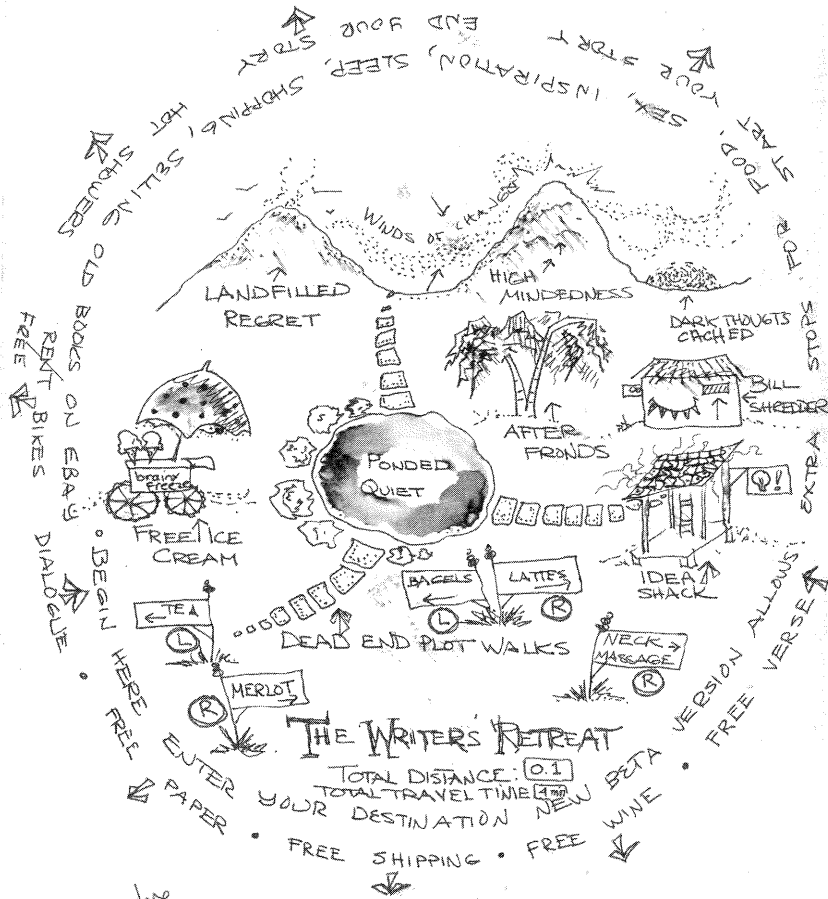 • BEGIN HERE ENTER YOUR DESTINATION NEW BETA VERSION ALLOWS EXTRA STOPS FOR FOOD, SEX, INSPIRATION, SLEEP, SHOPPING, SELLING OLD BOOKS ON EBAY
START YOUR STORY
END YOUR STORY
HOT SHOWERS
RENT BIKES
FREE
DIALOGUE • FREE PAPER • FREE SHIPPING • FREE WINE • FREE VERSE
WINDS OF CHANGE
LANDFILLED
REGRET
HIGH
MINDEDNESS
DARK THOUGTS
CACHED
AFTER
FRONDS
BILL
SHREDDER
PONDED
QUIET
brainy
freeze
FREE ICE
CREAM
Q!
IDEA
SHACK
BAGELS
L
LATTES
R
TEA
L
DEAD END PLOT WALKS
MERLOT
R
NECK
MASSAGE
R
THE WRITERS' RETREAT
TOTAL DISTANCE: 0.1
TOTAL TRAVEL TIME 4 min